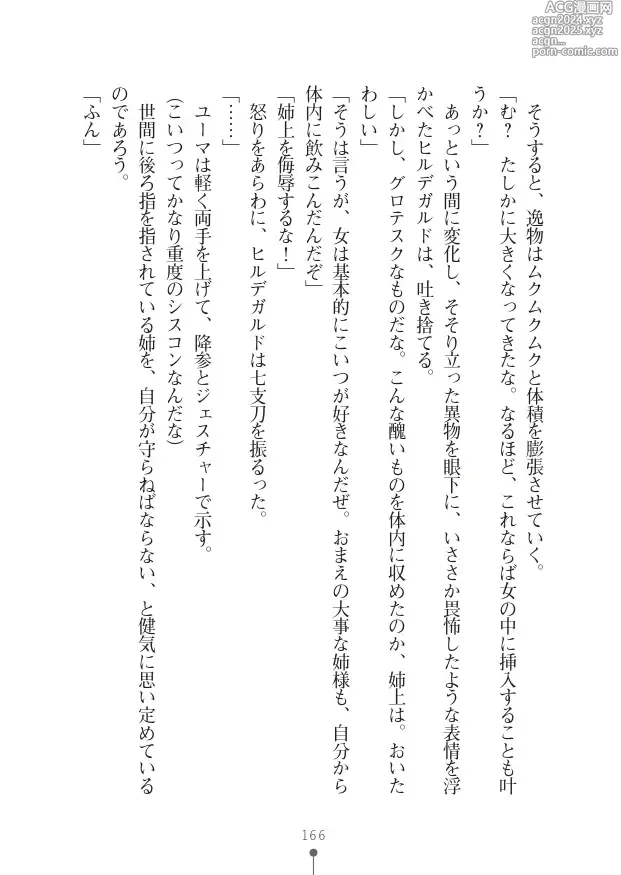 ACG漫画网
acgn2024.xyz
acgn2025.xyz
acgn...
porn-comic.com
そうすると、逸物はムクムクムクと体積を膨張させていく。
「む？　たしかに大きくなってきたな。なるほど、これならば女の中に挿入することも叶
うか？」
あっという間に変化し、そそり立った異物を眼下に、いささか畏怖したような表情を浮
かべたヒルデガルドは、吐き捨てる。
「しかし、グロテスクなものだな。こんな醜いものを体内に収めたのか、姉上は。おいた
わしい」
「そうは言うが、女は基本的にこいつが好きなんだぜ。おまえの大事な姉様も、自分から
体内に飲みこんだんだぞ」
「姉上を侮辱するな！」
怒りをあらわに、ヒルデガルドは七支刀を振るった。
「……」
ユーマは軽く両手を上げて、降参とジェスチャーで示す。
(こいつってかなり重度のシスコンなんだな)
世間に後ろ指を指されている姉を、自分が守らねばならない、と健気に思い定めている
のであろう。
「ふん」
166